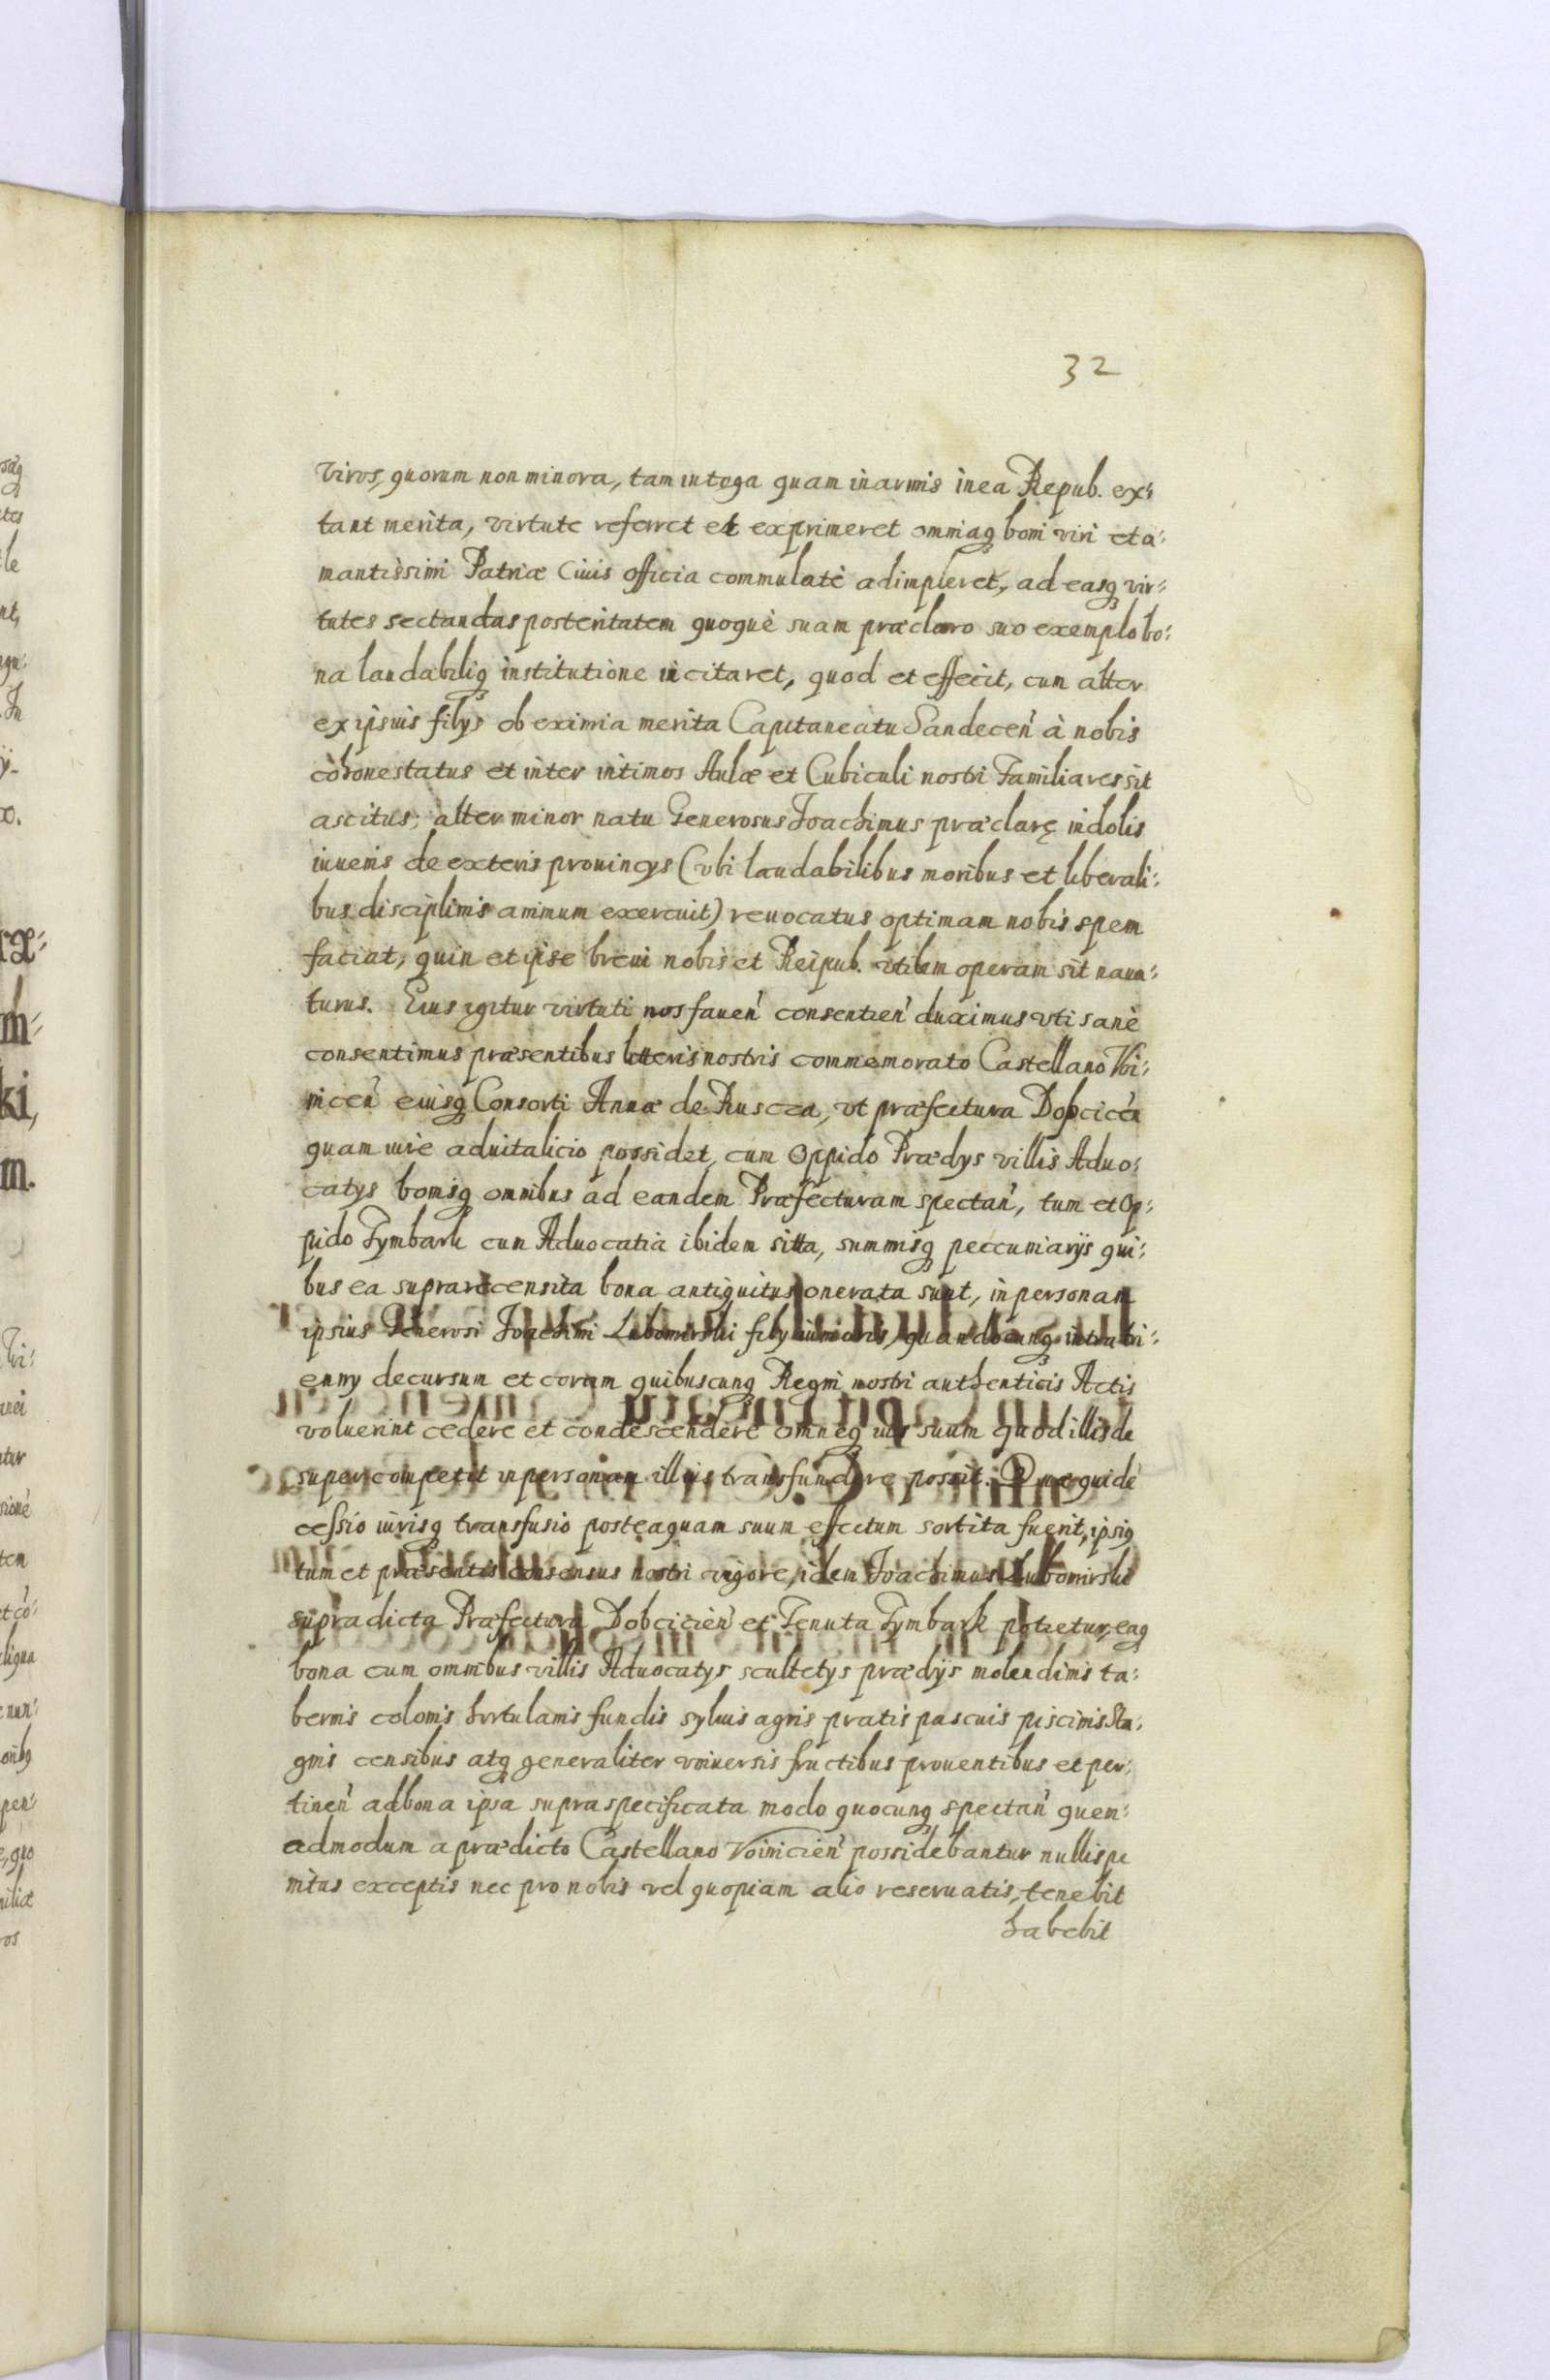 32
viros, quorum non minora, tam in toga quam in armis in ea Repub. ex:
tant merita, virtute referret et exprimeret omniaq boni viri et a:
mantissimi Patriæ Ciuis officia commulatè adimpleret, ad easq vir:
tutes sectandas posteritatem quoquè suam præclaro suo exemplo bo:
na laudabiliq institutione incitaret, quod et effecit, cum alter
ex ipsius filys ob eximia merita Capitaneatu Sandeceń à nobis
cohonestatus et inter intimos Aulæ et Cubiculi nostri Familiares sit
ascitus; alter minor natu Generosus Joachimus præclarę indolis
iuuenis de exteris prouincys (vbi laudabilibus moribus et liberali:
bus disciplinis animum exercuit) reuocatus optimam nobis spem
faciat, quin et ipse breui nobis et Reipub. vtilem operam sit naua:
turus. Eius igitur virtuti nos faueń consentień duximus vti sanè
consentimus præsentibus litteris nostris commemorato Castellano Voi:
niceń eiusq Consorti Annæ de Ruscza, vt præfectura Dobciceń
quam iure aduitalicio possidet, cum Oppido Prædys villis Aduo:
catys bonisq omnibus ad eandem Præfecturam spectań, tum et Op:
pido Tymbark cum Aduocatia ibidem sitta, summisq peccuniarijs qui:
bus ea suprarecensita bona antiquitus onerata sunt, in personam
ipsius Generosi Joachimi Lubomirski fily iunioris, quandocunq intra tri:
enny decursum et coram quibuscunq Regni nostri authenticis Actis
voluerint cedere et condescendere omneq ius suum quod illis de
super competit in personam illius transfundere possit. Quæ quidè
cessio iurisq transfusio posteaquam suum effectum sortita fuerit, ipsiq
tum et præsentis consensus nostri vigore, idem Joachimus Lubomirski
supradicta Præfectura Dobcicień et Tenuta Tymbark potietur, eaq
bona cum omnibus villis Aduocatys scultetys prædijs molendinis ta:
bernis colonis hortulanis fundis syluis agris pratis pascuis piscinis sta:
gnis censibus atq generaliter vniuersis fructibus prouentibus et per:
tineń ad bona ipsa supraspecificata modo quocunq spectań quem:
admodum a prædicto Castellano Voinicień possidebantur nullis pe
nitus exceptis nec pro nobis vel quopiam alio reseruatis, tenebit
habebit